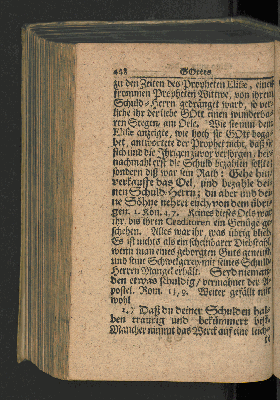 448 GOttes
zu den Zeiten des Propheten Elisæ, eines
frommen Propheten Wittwe, von ihrem
Schuld-Herrn gedränget ward, so ver-
liehe ihr der liebe GOtt einen wunderba-
ren Seegen, am Oele. Wie sie nun dem
Elisæ anzeigte, wie hoch sie GOtt bega-
bet, antwortete der Prophet nicht, daß sie
sich und die Ihrigen zuvor versorgen, her-
nachmahl erst die Schuld bezahlen sollte,
sondern diß war sein Rath: Gehe hin/
verkauffe das Oel, und bezahle dei-
nen Schuld-Herrn; du aber und dei-
ne Söhne nehret euch von dem übri-
gen. 2. Kön. 4. 7. Keines dieses Oels war
ihr, bis ihren Creditoren ein Genüge ge-
schehen. Alles war ihr, was übrig blieb.
Es ist nichts als ein scheinbarer Diebstahl,
wenn man eines geborgten Guts geneust,
und seine Schwelgerey mit seines Schuld-
Herren Mangel erhält. Seyd nieman-
den etwas schuldig/ vermahnet der A-
postel. Rom. 13, 8. Weiter gefällt mir
wohl
2.) Daß du deiner Schulden hal-
ben traurig und bekümmert bist.
Mancher nimmt das Werck auf eine leich-
te